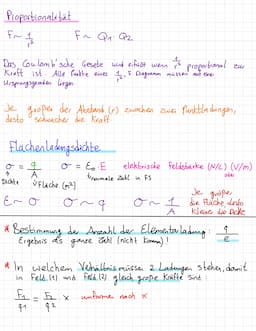 Proportionalität
F ~ 1/r² F ~ Q₁ · Q₂
Das Coulomb'sche Gesetz wird erfüllt wenn 1/r² proportional zur
Kraft ist. Alle Punkte eines 1/r², F Diagramm müssen auf einer
Ursprungsgeraden liegen
Je größer der Abstand (r) zwischen zwei Punktladungen,
desto schwächer die Kraft
Flächenladungsdichte
σ = q/A σ = ε₀ · E elektrische Feldstärke (N/C) (V/m)
Dichte Fläche (m²) normale Zahl in FS
E ~ σ σ ~ q σ ~ 1/A
Je größer
die Fläche, desto
kleiner die Dichte
* Bestimmung der Anzahl der Elementarladung: q/e
Ergebnis als ganze Zahl (nicht Komma!)
* In welchem Verhältnis müssen 2 Ladungen stehen, damit
in Feld (1) und Feld (2) gleich große Kräfte sind:
F₁/q₁ = F₂/q₂ · x umformen nach x